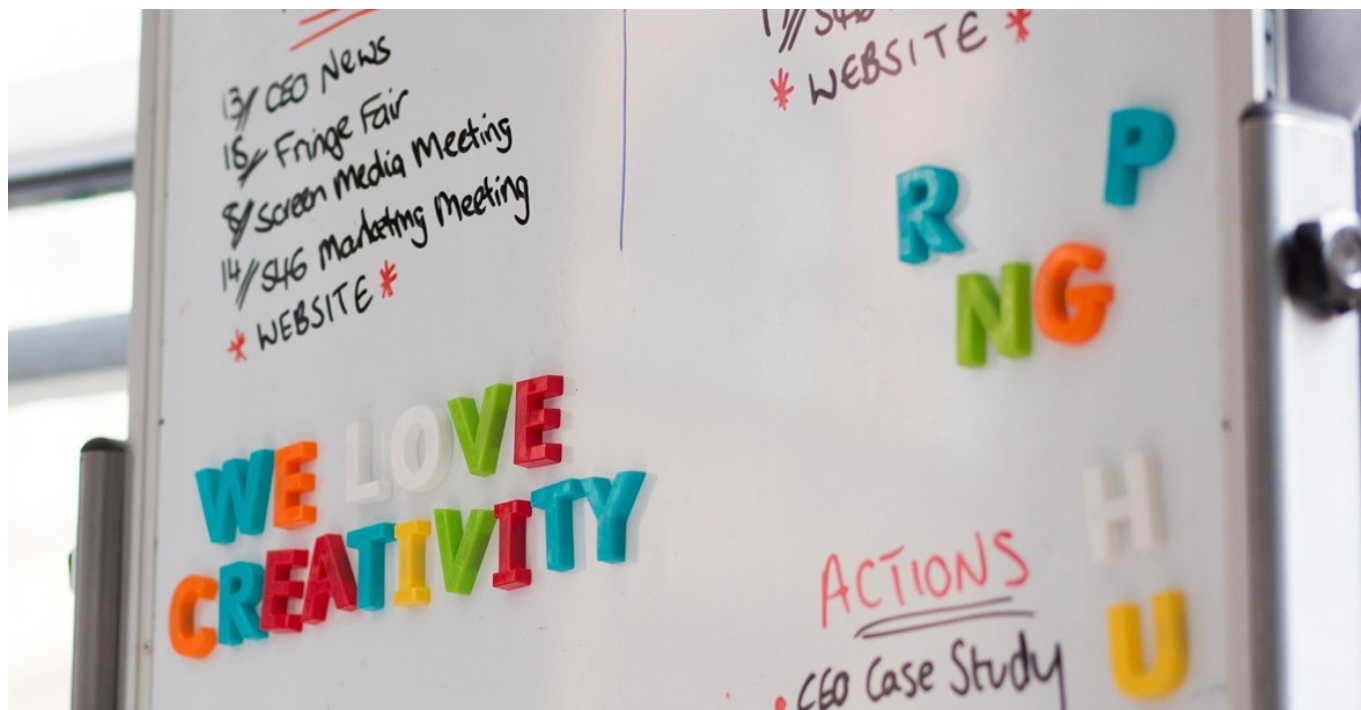 13/ CEO News
15/ Fringe Fair
8/ Screen Media Meeting
14/ S4G Marketing Meeting
* WEBSITE *
WE LOVE
CREATIVITY
* WEBSITE *
P
R
N G
H
U
ACTIONS
• CEO Case Study